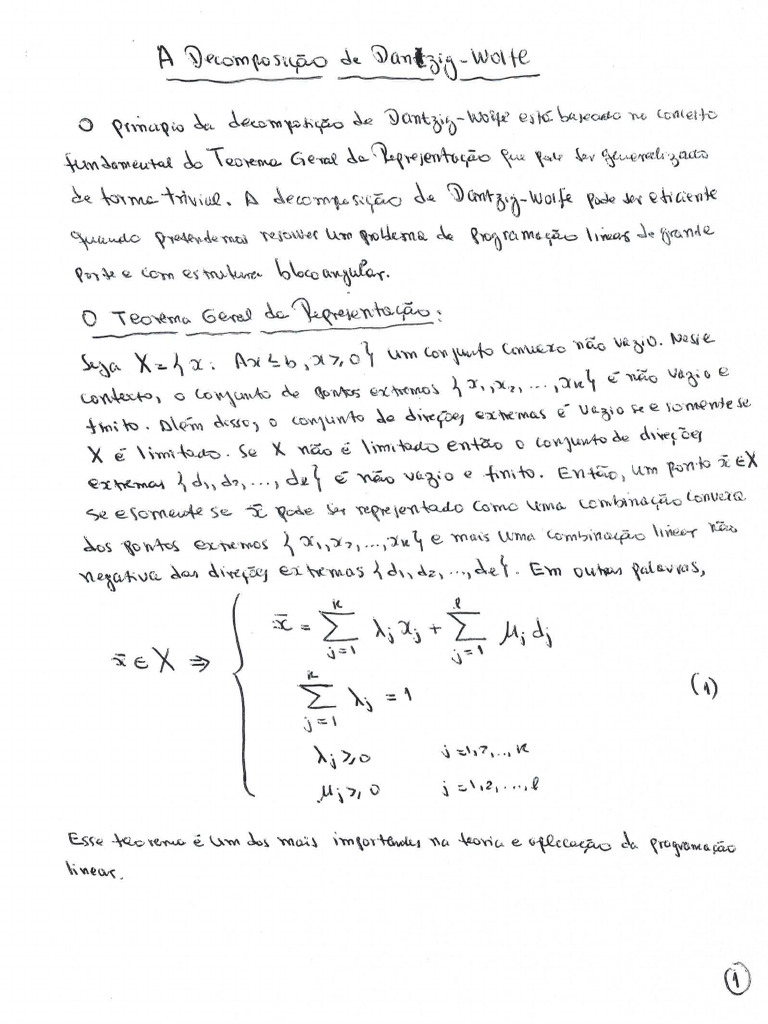 A Decomposição de Dantzig-Wolfe
O princípio da decomposição de Dantzig-Wolfe está baseado no conceito
fundamental do Teorema Geral da Representação que pode ser generalizado
de forma trivial. A decomposição de Dantzig-Wolfe pode ser eficiente
quando pretendemos resolver um problema de programação linear de grande
porte e com estrutura bloco angular.
O Teorema Geral da Representação:
Seja X = { x : Ax ≤ b, x ≥ 0 } um conjunto convexo não vazio. Nesse
contexto, o conjunto de pontos extremos { x₁, x₂, ..., xₖ } é não vazio e
finito. Além disso, o conjunto de direções extremas é vazio se e somente se
X é limitado. Se X não é limitado então o conjunto de direções
extremas { d₁, d₂, ..., dℓ } é não vazio e finito. Então, um ponto x̄ ∈ X
se e somente se x̄ pode ser representado como uma combinação convexa
dos pontos extremos { x₁, x₂, ..., xₖ } e mais uma combinação linear não
negativa das direções extremas { d₁, d₂, ..., dℓ }. Em outras palavras,
x̄ ∈ X ⇒ { x̄ = ∑_{j=1}^{k} λⱼ xⱼ + ∑_{j=1}^{ℓ} μⱼ dⱼ
∑_{j=1}^{k} λⱼ = 1 (1)
λⱼ ≥ 0 j = 1, 2, ..., k
μⱼ ≥ 0 j = 1, 2, ..., ℓ
Esse teorema é um dos mais importantes na teoria e aplicação da programação
linear.
1